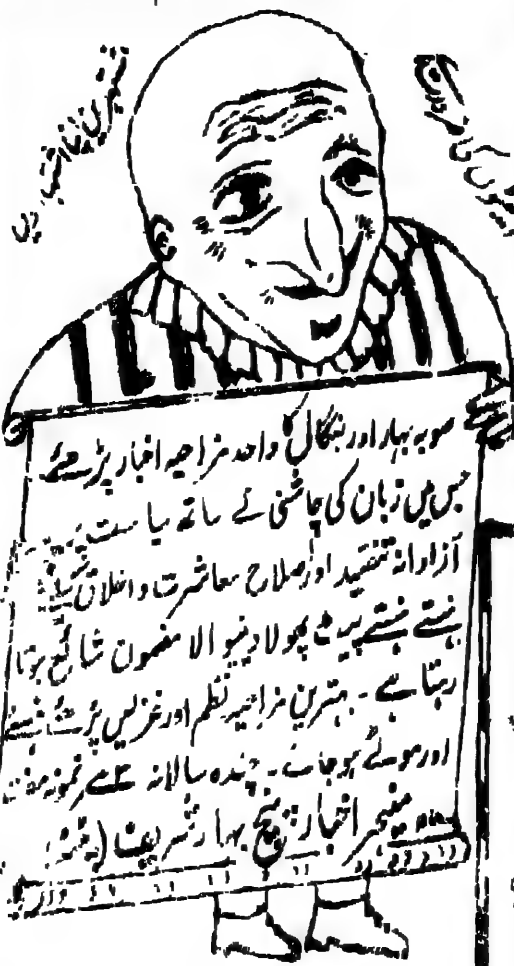 ایجنٹوں کی ضرورت ہے
مشتہرین
صوبہ بہار اور بنگال کا واحد مزاحیہ اخبار پڑھئے
جس میں زبان کی چاشنی کے ساتھ سیاست پر
آزادانہ تنقید اور اصلاح معاشرت و اخلاق کیلئے
ہنستے ہنستے پیٹ پھولا دینیو الا مضمون شائع ہوتا
رہتا ہے ۔ بہترین مزاحیہ نظم اور غزلیں پڑھئے
اور موٹے ہو جائیے ۔ چندہ سالانہ نمونہ مفت
منیجر اخبار پنچ بہار شریف (پٹنہ)